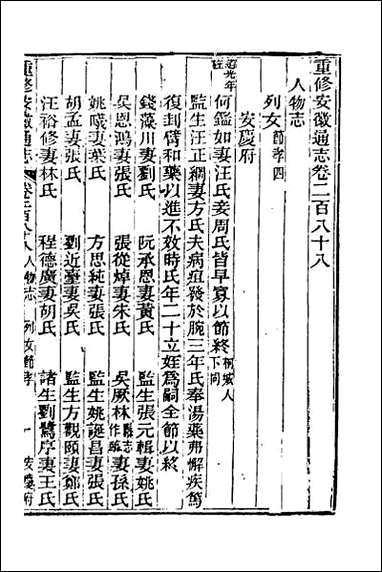 重修安徽通志卷二百八十八
人物志
列女節孝四
安慶府
道光年
旌
何鑑如妻汪氏妾周氏皆早寡以節終桐城人下同
監生汪正綱妻方氏夫病疽發於腕三年氏奉湯藥弗解疾篤
復刲臂和藥以進不效時氏年二十立姪爲嗣全節以終
錢藻川妻劉氏 阮承恩妻黃氏 監生張元輯妻姚氏
吳恩鴻妻張氏 張從焯妻朱氏 吳厥林縣志作臨妻孫氏
姚暵妻葉氏 方思純妻張氏 監生姚誕昌妻張氏
胡孟妻張氏 劉近臺妻吳氏 監生方觀頤妻鄭氏
汪裕修妻林氏 程德廣妻胡氏 諸生劉鷺序妻王氏
重修安徽通志 卷二百八十八 人物志 列女節孝 一 安慶府